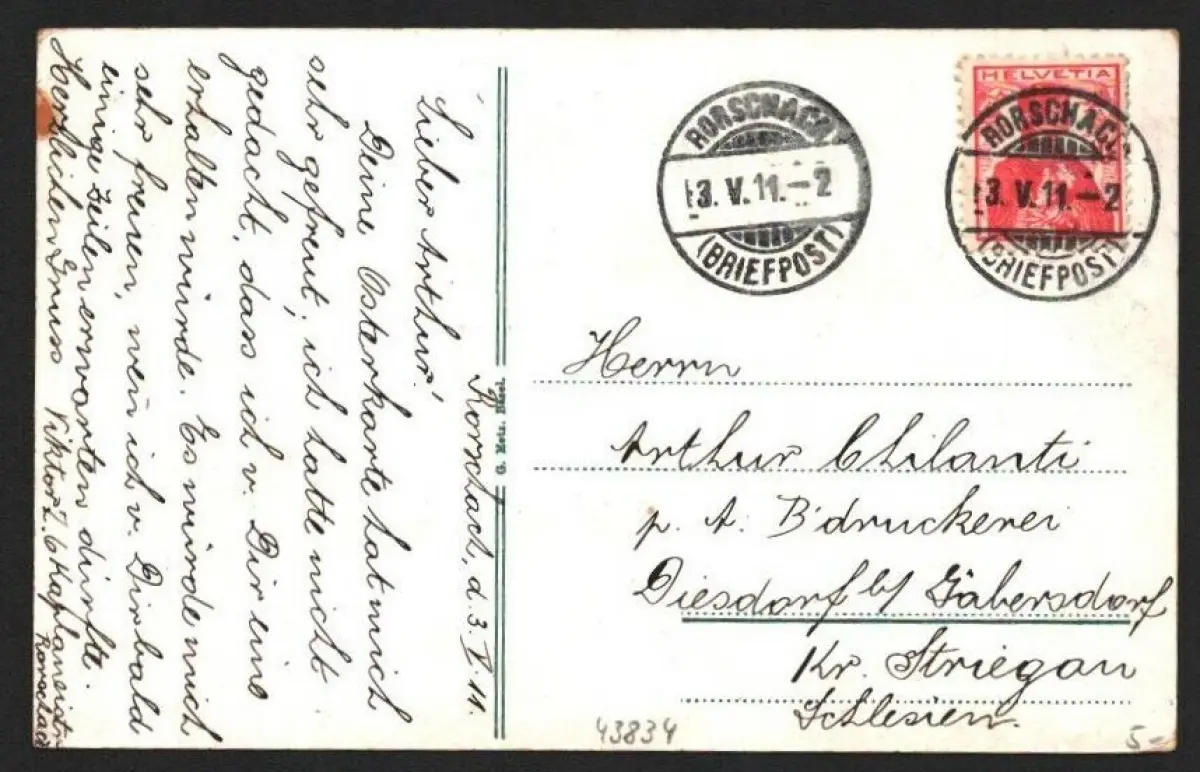 Rorschach, d. 3. V. 11.
Lieber Arthur!
Deine Osterkarte hat mich
sehr gefreut, ich hatte nicht
gedacht, dass ich v. Dir eine
erhalten würde. Es würde mich
sehr freuen, wen̄ ich v. Dir bald
einige Zeilen erwarten dürfte.
Herzlichen Gruss Viktor Z. 6
Rorschach
G. Metz, Basel.
HELVETIA
RORSCHACH
3. V. 11.-2
(BRIEFPOST)
RORSCHACH
3. V. 11.-2
(BRIEFPOST)
Herrn
Arthur Chilanti
p. A. B'druckerei
Diesdorf b/ Gäbersdorf
Kr. Striegau
Schlesien.
43834
5-